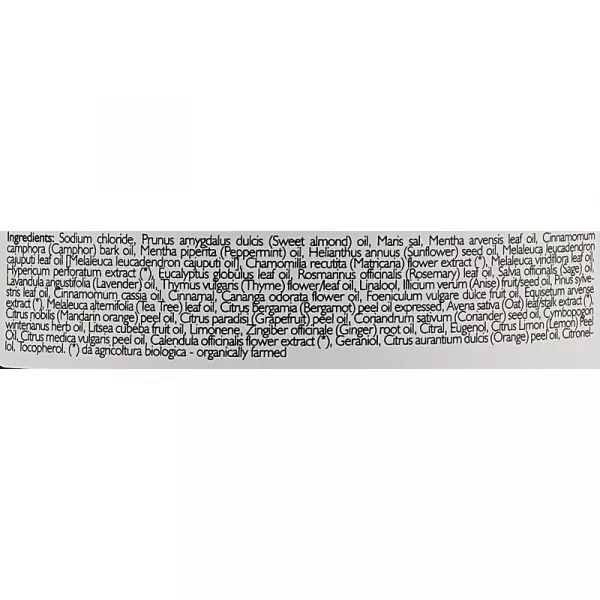 Ingredients: Sodium chloride, Prunus amygdalus dulcis (Sweet almond) oil, Maris sal, Mentha arvensis leaf oil, Cinnamomum
camphora (Camphor) bark oil, Mentha piperita (Peppermint) oil, Helianthus annuus (Sunflower) seed oil, Melaleuca leucadendron
cajuputi leaf oil [Melaleuca leucadendron cajuputi oil], Chamomilla recutita (Matricaria) flower extract (*), Melaleuca viridiflora leaf oil,
Hypericum perforatum extract (*), Eucalyptus globulus leaf oil, Rosmarinus officinalis (Rosemary) leaf oil, Salvia officinalis (Sage) oil,
Lavandula angustifolia (Lavender) oil, Thymus vulgaris (Thyme) flower/leaf oil, Linalool, Illicium verum (Anise) fruit/seed oil, Pinus sylve-
stris leaf oil, Cinnamomum cassia oil, Cinnamal, Cananga odorata flower oil, Foeniculum vulgare dulce fruit oil, Equisetum arvense
extract (*), Melaleuca alternifolia (Tea Tree) leaf oil, Citrus Bergamia (Bergamot) peel oil expressed, Avena sativa (Oat) leaf/stalk extract (*),
Citrus nobilis (Mandarin orange) peel oil, Citrus paradisi (Grapefruit) peel oil, Coriandrum sativum (Coriander) seed oil, Cymbopogon
winterianus herb oil, Litsea cubeba fruit oil, Limonene, Zingiber officinale (Ginger) root oil, Citral, Eugenol, Citrus Limon (Lemon) Peel
Oil, Citrus medica vulgaris peel oil, Calendula officinalis flower extract (*), Geraniol, Citrus aurantium dulcis (Orange) peel oil, Citronel-
lol, Tocopherol. (*) da agricoltura biologica - organically farmed